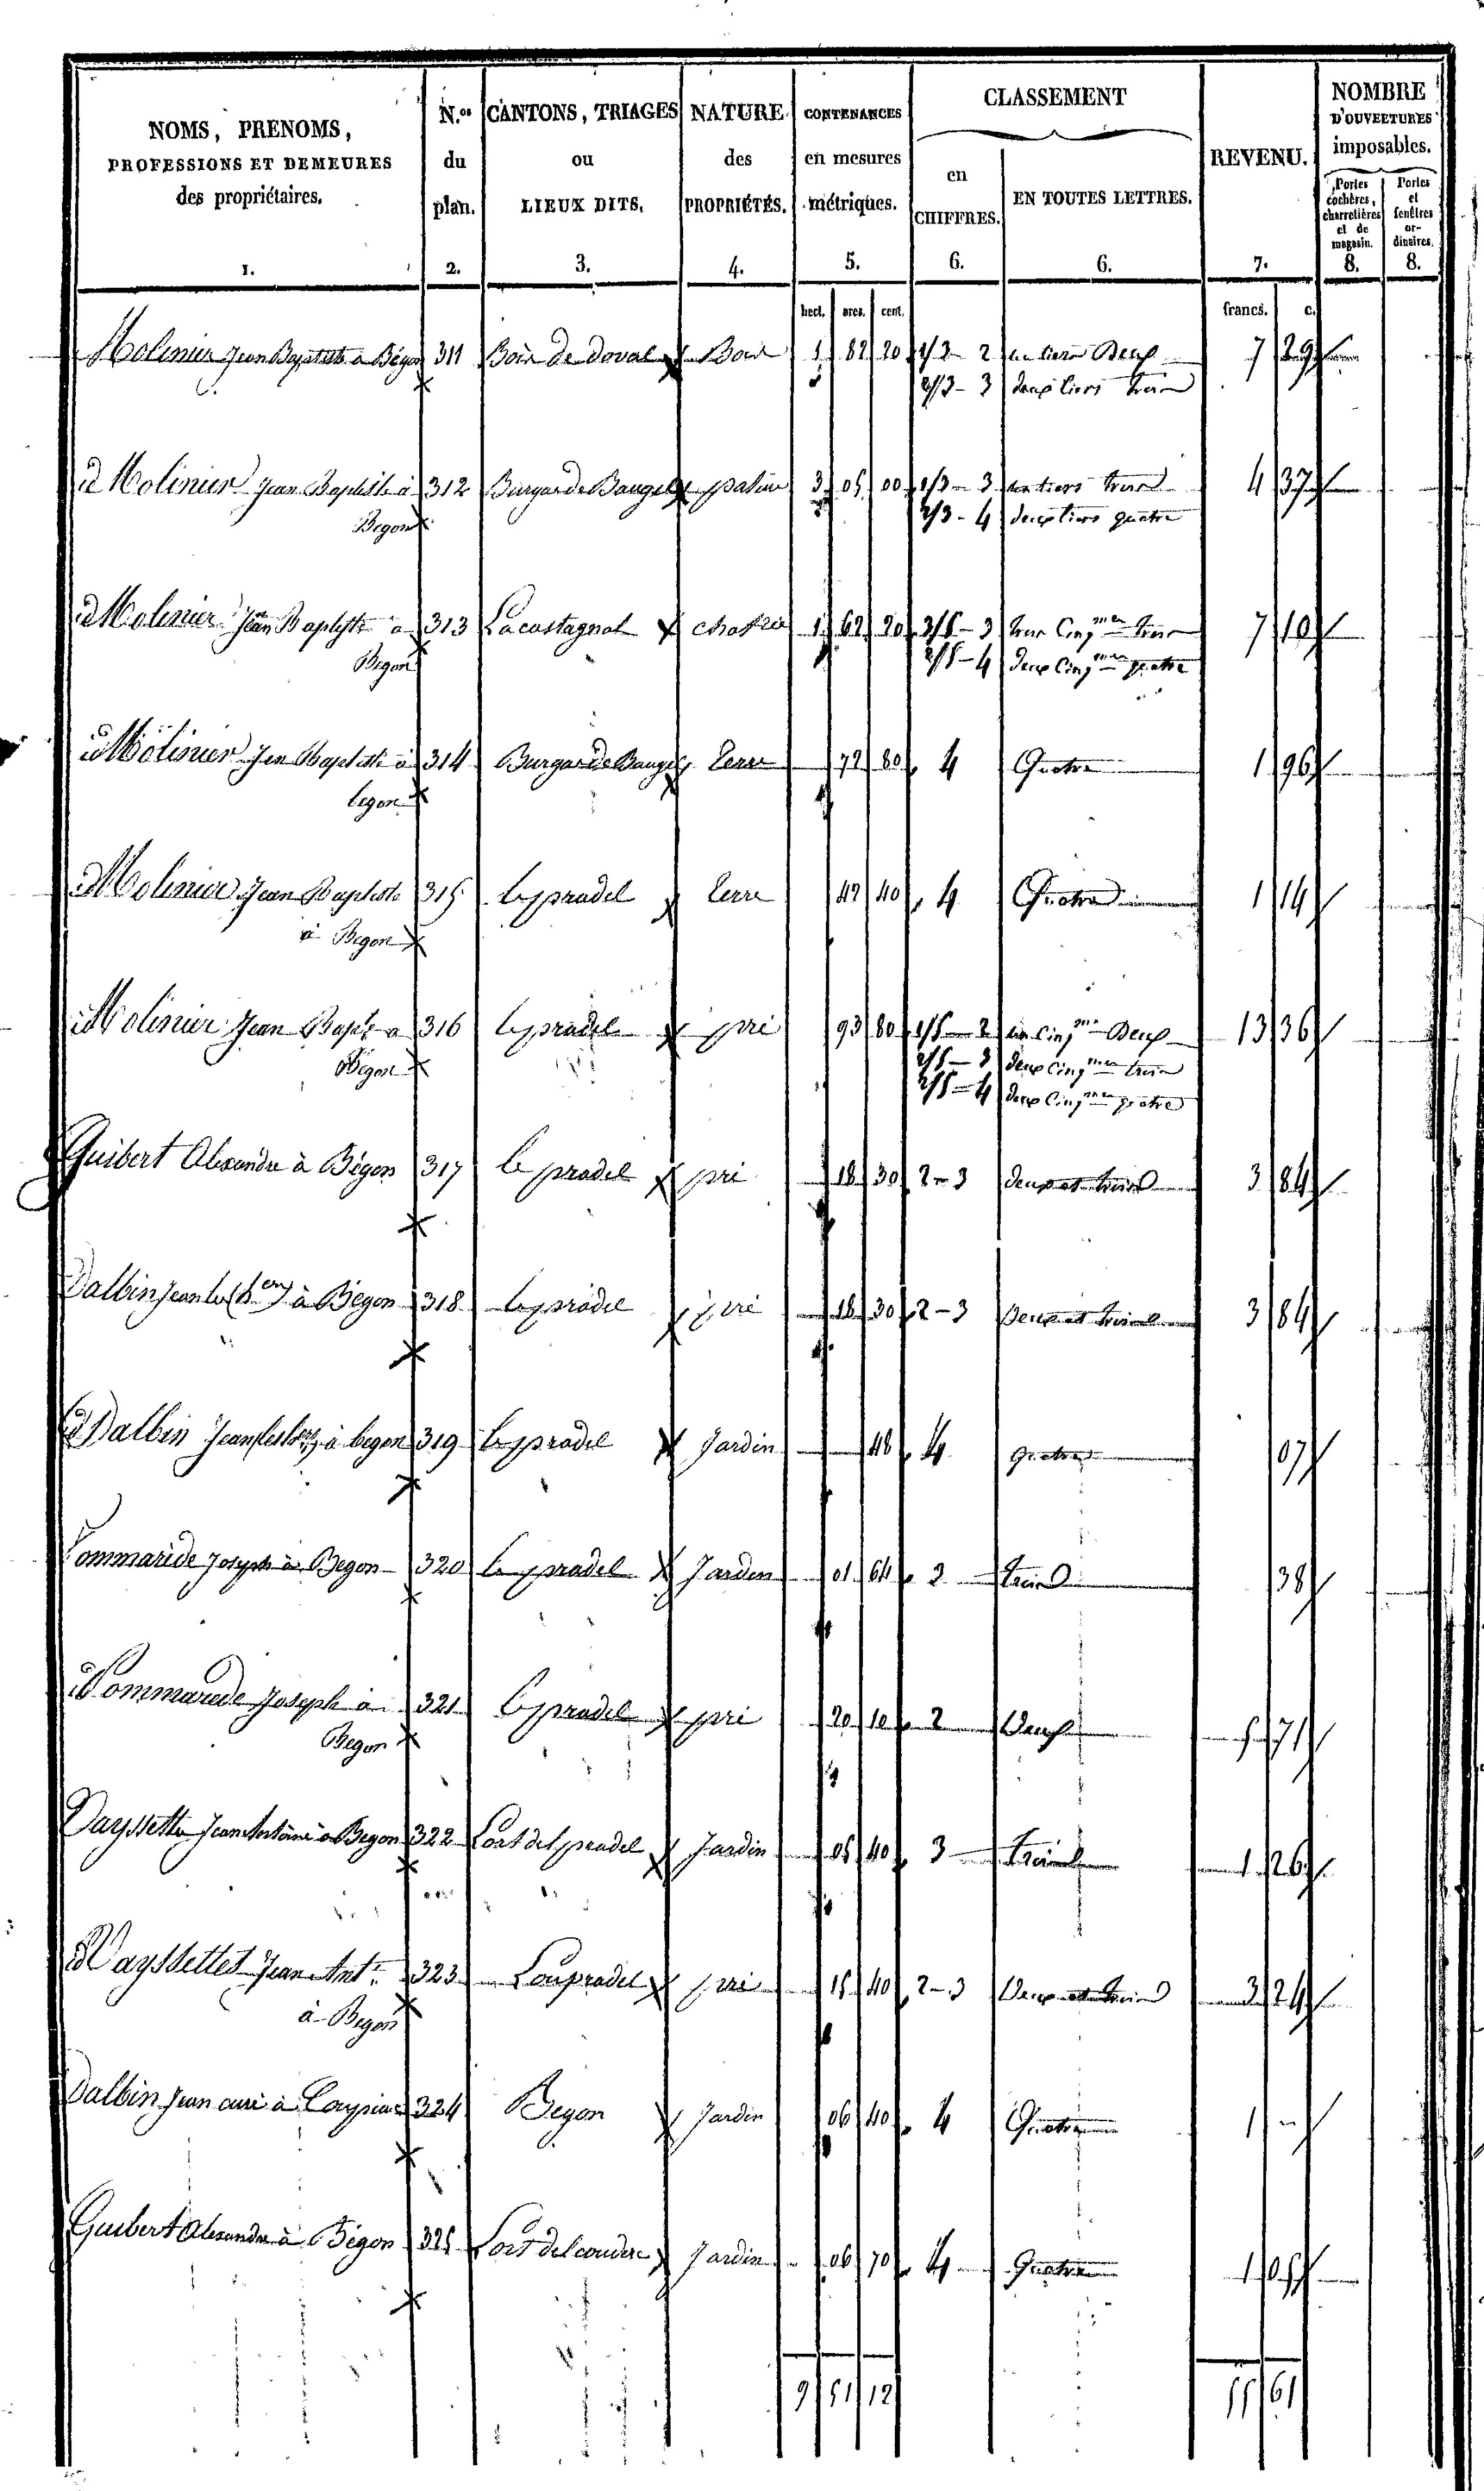 NOMS, PRENOMS, PROFESSIONS ET DEMEURES des propriétaires. 1.
N.os du plan. 2.
CANTONS, TRIAGES ou LIEUX DITS. 3.
NATURE des PROPRIÉTÉS. 4.
CONTENANCES en mesures métriques. 5.
CLASSEMENT
en CHIFFRES. 6.
EN TOUTES LETTRES. 6.
REVENU. 7.
NOMBRE D'OUVERTURES imposables.
Portes cochères, charretières et de magasin. 8.
Portes et fenêtres ordinaires. 8.
hect. ares. cent. francs. c.
Molinier Jean Baptiste à Bégon 311 Bois de Doval Bois 1 82 20 1/3 - 2 un tiers Deux 7 29
2/3 - 3 deux tiers trois
id Molinier Jean Baptiste à 312 Burgar de Baugel pature 3 05 00 1/3 - 3 un tiers trois 4 37
Begon 2/3 - 4 deux tiers quatre
id Molinier Jean Baptiste a 313 Lacastagnal 1 62 20 3/5 - 3 trois Cinq mes trois 7 10
Begon 2/5 - 4 deux Cinq mes quatre
id Molinier Jean Baptiste à 314 Burgar de Baugel terre 72 80 4 Quatre 1 96
begon
id Molinier Jean Baptiste 315 le pradel terre 42 40 4 Quatre 1 14
à Begon
id Molinier Jean Bapte a 316 le pradel pré 93 80 1/5 - 2 un Cinq me Deux 13 36
Begon 2/5 - 3 deux Cinq mes trois
2/5 - 4 deux Cinq mes quatre
Guibert Alexandre à Bégon 317 le pradel pré 18 30 2 - 3 deux et trois 3 84
Dalbin Jean les (hers) à Bégon 318 le pradel pré 18 30 2 - 3 Deux et trois 3 84
id Dalbin Jean (les hers) à begon 319 le pradel Jardin 48 4 quatre 07
Pommarède Joseph à Begon 320 le pradel Jardin 01 64 3 trois 38
id Pommarede Joseph à 321 le pradel pré 20 10 2 Deux 5 71
Begon
Vayssettes Jean Antoine à Begon 322 Lort del pradel Jardin 05 40 3 trois 1 26
id Vayssettes Jean Ant.e 323 Lou pradel pré 15 40 2 - 3 Deux et trois 3 24
à Begon
Dalbin Jean curé à 324 Begon Jardin 06 40 4 Quatre 1 -
Guibert Alexandre à Bégon 325 Lort del couderc Jardin 06 70 4 Quatre 1 05
9 51 12 55 61